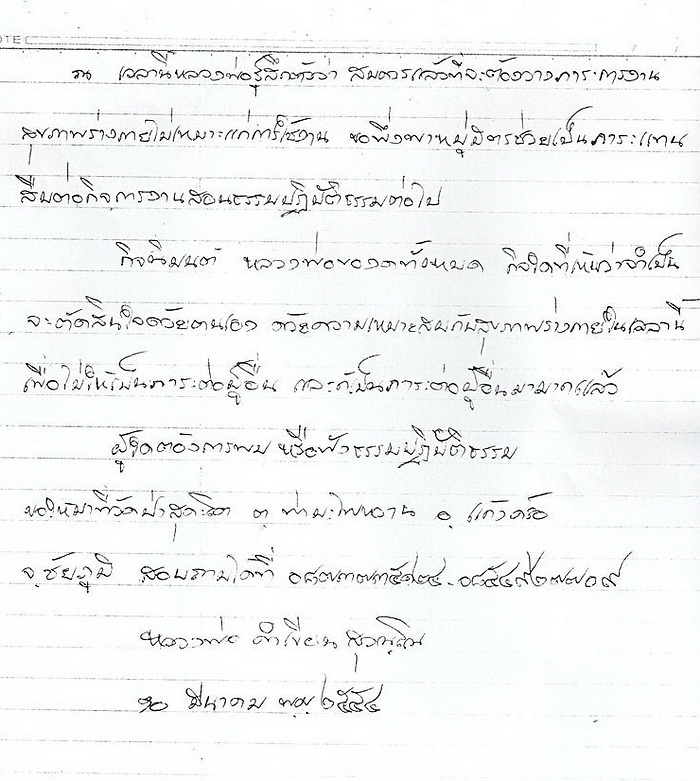 NOTE
ณ เวลานี้หลวงพ่อรู้สึกตัวว่า สมควรแล้วที่จะต้องวางภาระการงาน
สุขภาพร่างกายไม่เหมาะแก่การใช้งาน ขอพึ่งพาหมู่มิตรช่วยเป็นภาระแทน
สืบต่อกิจการงานสอนธรรมปฏิบัติธรรมต่อไป
กิจนิมนต์ หลวงพ่อของดทั้งหมด กิจใดที่เห็นว่าจำเป็น
จะตัดสินใจด้วยตนเอง ด้วยความเหมาะสมกับสุขภาพร่างกายในเวลานี้
เพื่อไม่ให้เป็นภาระต่อผู้อื่น และก็เป็นภาระต่อผู้อื่นมามากแล้ว
ผู้ใดต้องการพบ หรือฟังธรรมปฏิบัติธรรม
ขอให้มาที่วัดป่าสุคะโต ต. ท่ามะไฟหวาน อ. แก้งคร้อ
จ. ชัยภูมิ สอบถามได้ที่
หลวงพ่อ คำเขียน สุวณฺโณ
๒๐ มีนาคม พ.ศ. ๒๕๕๔